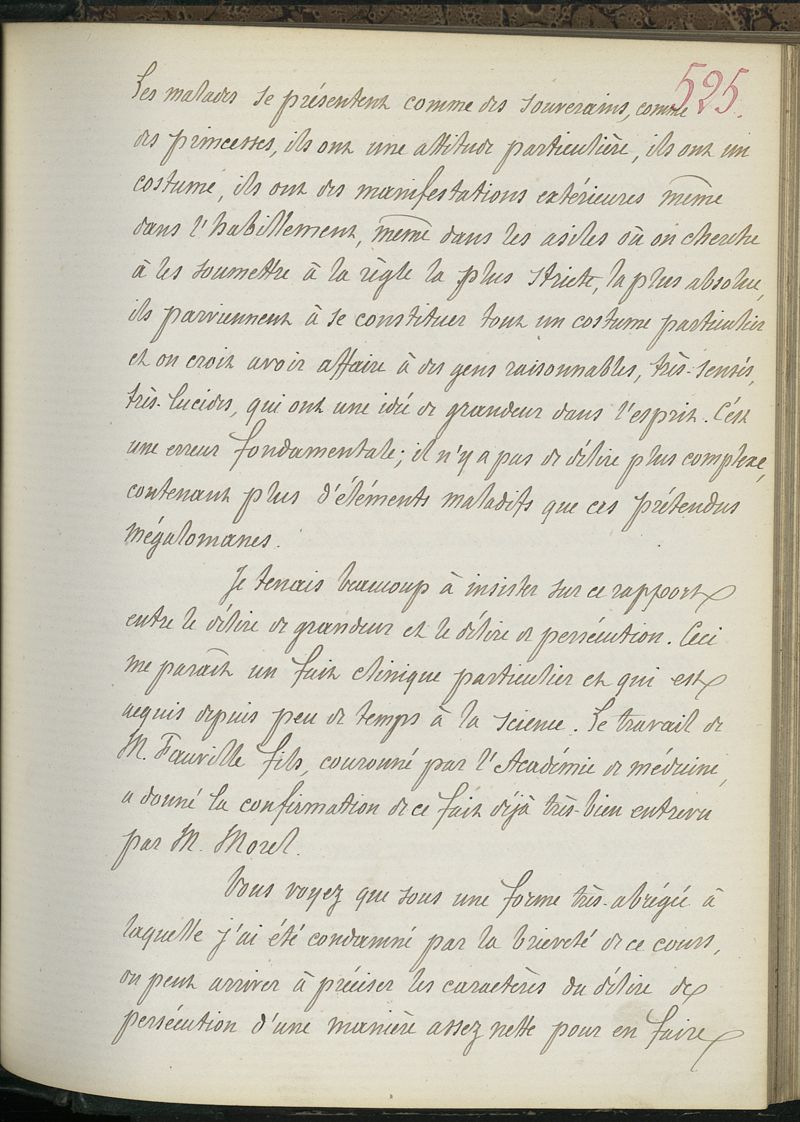 525.
Les malades se présentent comme des souverains, comme
des princesses, ils ont une attitude particulière, ils ont un
costume, ils ont des manifestations extérieures même
dans l'habillement, même dans les asiles où on cherche
à les soumettre à la règle la plus stricte, la plus absolue,
ils parviennent à se constituer tout un costume particulier
et on croit avoir affaire à des gens raisonnables, très-sensés,
très-lucides, qui ont une idée de grandeur dans l'esprit. C'est
une erreur fondamentale; il n'y a pas de délire plus complexe,
contenant plus d'éléments maladifs que ces prétendus
mégalomanes.
Je tenais beaucoup à insister sur ce rapport
entre le délire de grandeur et le délire de persécution. Ceci
me paraît un fait clinique particulier et qui est
acquis depuis peu de temps à la science. Le travail de
M. Fauville fils, couronné par l'Académie de médecine,
a donné la confirmation de ce fait déjà très-bien entrevu
par M. Morel.
Vous voyez que sous une forme très-abrégée à
laquelle j'ai été condamné par la brieveté de ce cours,
on peut arriver à préciser les caractères du délire de
persécution d'une manière assez nette pour en faire